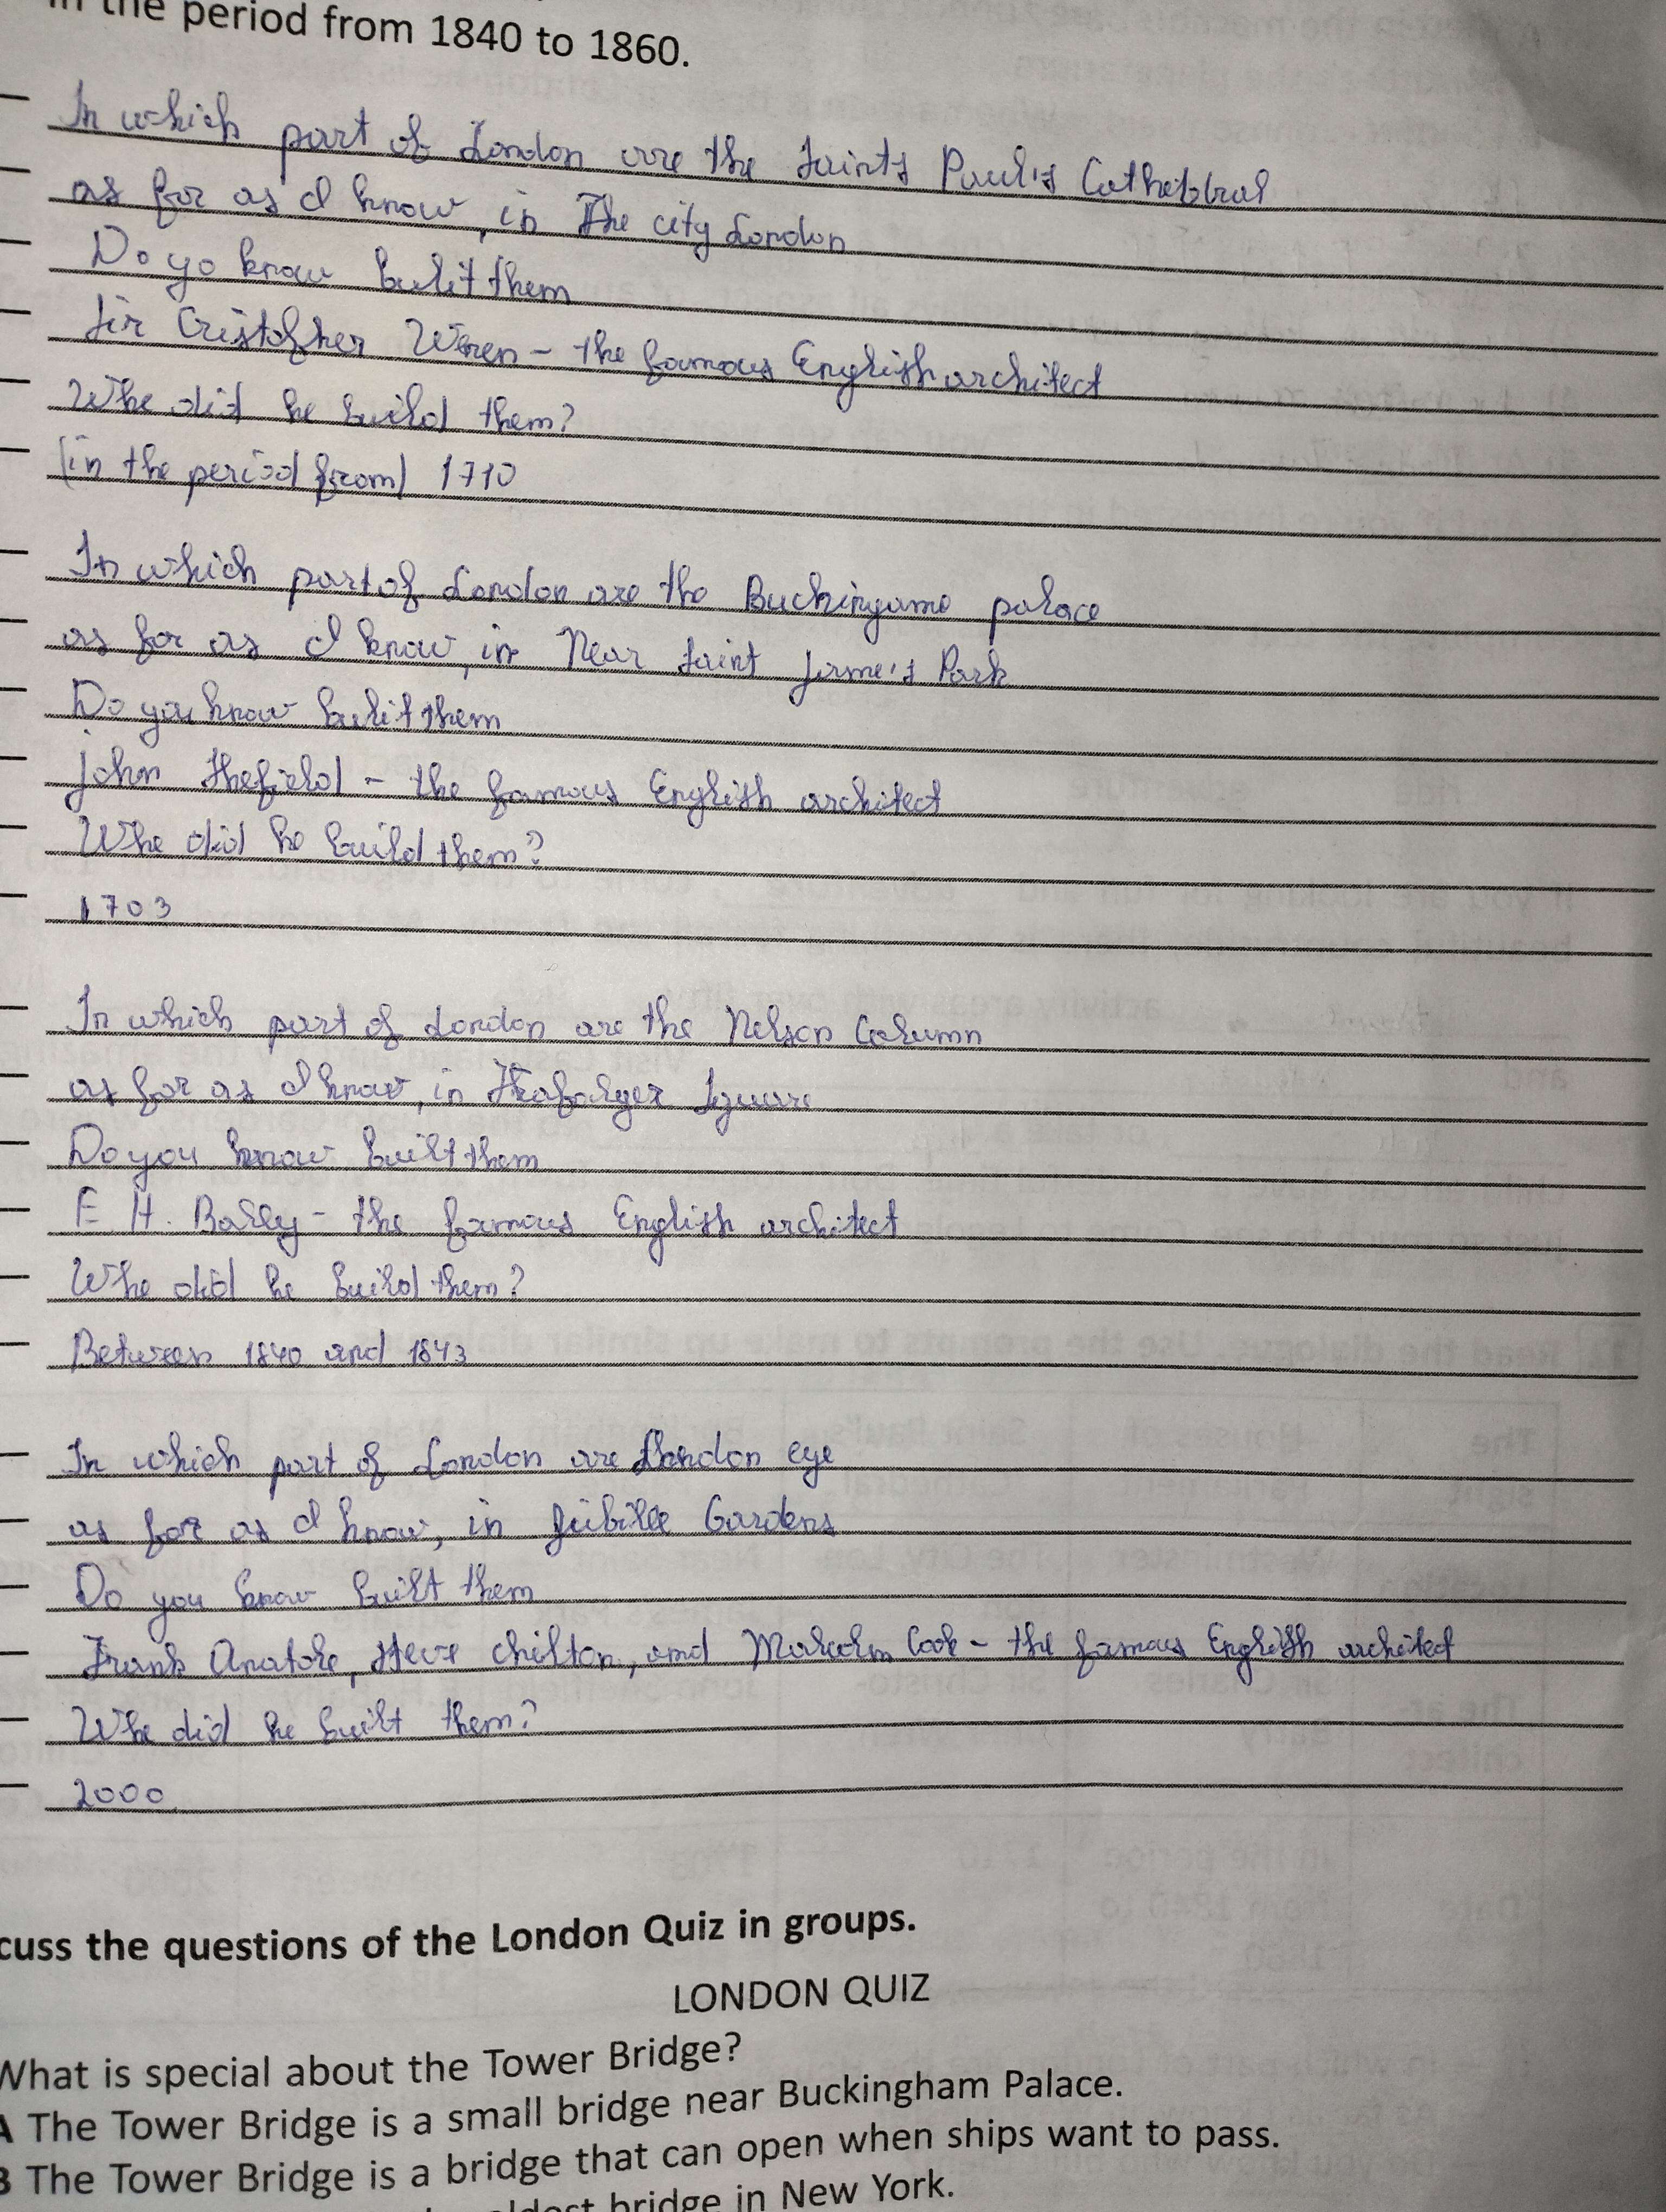 in the period from 1840 to 1860.
– In which part of London are the Saints Paul's Cathebral
– as for as I know, in The city London
– Do yo know bulit them
– Sir Cristofher Wren – the famous English architect
– Whe did he build them?
– (in the period from) 1710
– In which part of London are the Buckingame palace
– as for as I know, in Near Saint Jame's Park
– Do you know bulit them
– John Shefield – the famous English architect
– Whe did he build them?
– 1703
– In which part of London are the Nelson Column
– as for as I know, in Trafalger Squure
– Do you know built them
– E H. Baily – the famous English architect
– Whe did he build them?
– Between 1840 and 1843
– In which part of London are London eye
– as for as I know, in Jubilee Gardens
– Do you know built them
– Frank Anatole, Steve Chilton, and Malcolm Cook – the famous English architect
– Whe did he built them?
– 2000
cuss the questions of the London Quiz in groups.
LONDON QUIZ
What is special about the Tower Bridge?
A The Tower Bridge is a small bridge near Buckingham Palace.
B The Tower Bridge is a bridge that can open when ships want to pass.
bridge in New York.